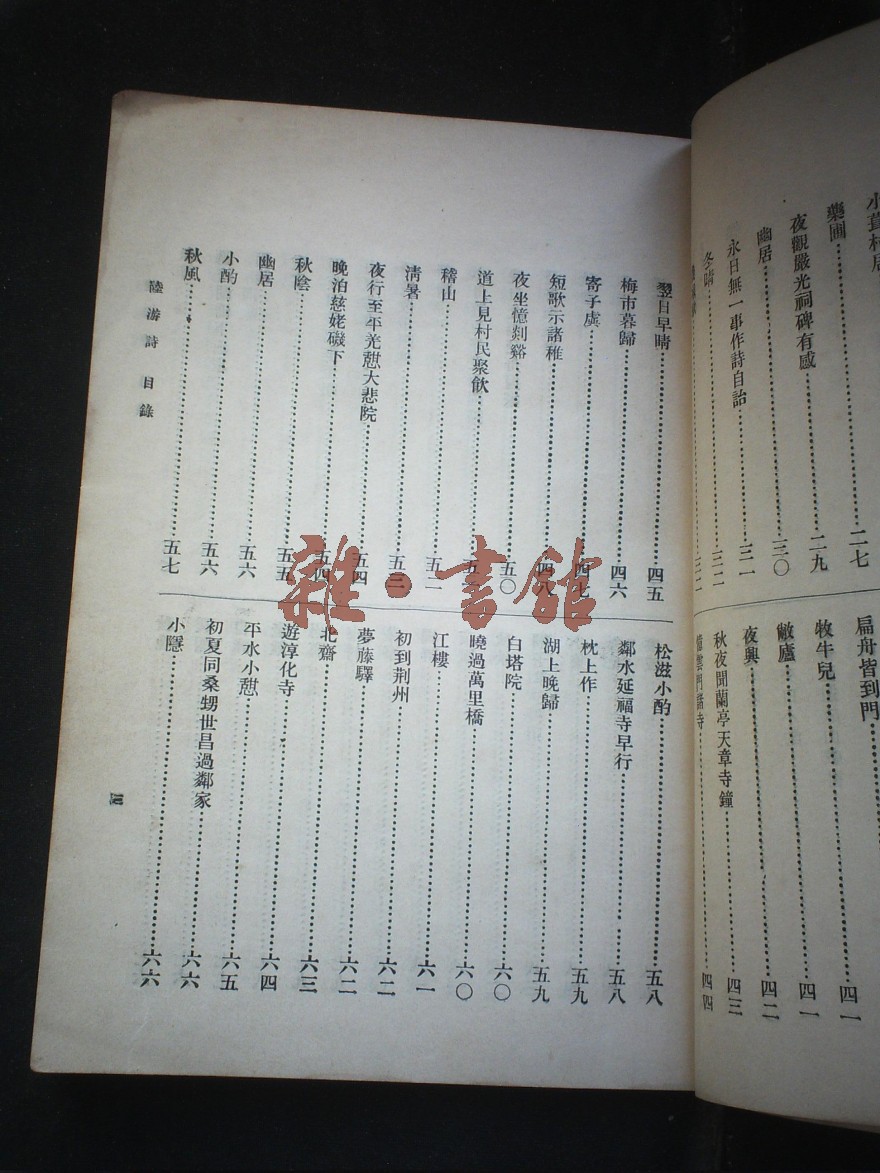 藥圃……二七
夜觀嚴光祠碑有感……二九
幽居……三〇
永日無一事作詩自詒……三一
冬晴……三二
扁舟皆到門……四一
牧牛兒……四一
敝廬……四二
夜興……四三
秋夜聞蘭亭天章寺鐘……四四
憶雲門諸寺
翌日早晴……四五
梅市暮歸……四六
寄子虡……四七
短歌示諸稚……四八
夜坐憶剡谿……五〇
道上見村民聚飲……五
稽山……五二
清暑……五三
夜行至平光憇大悲院……五四
晚泊慈姥磯下……五四
秋陰……五五
幽居……五六
小酌……五六
秋風……五七
松滋小酌……五八
鄰水延福寺早行……五八
枕上作……五九
湖上晚歸……五九
白塔院……六〇
曉過萬里橋……六〇
江樓……六一
初到荆州……六二
夢藤驛……六二
北齋……六三
遊淳化寺……六四
平水小憇……六五
初夏同桑甥世昌過鄰家……六六
小隱……六六
陸游詩 目錄
四
雜·書館